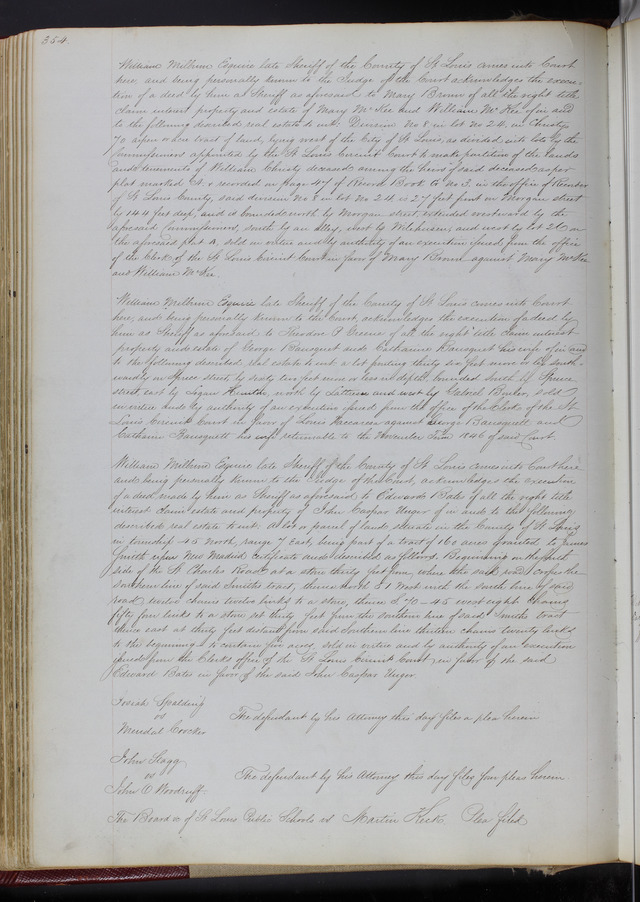 354.
William Milburn Esquire late Sheriff of the County of St Louis comes into Court
here, and being personally known to the Judge of the Court acknowledges the execu-
tion of a deed by him as Sheriff as aforesaid to Mary Brown of all the right title
claim interest property and estate of Mary McKee and William McKee of in and
to the following described real estate to wit: Division No 8 in lot No 24, in Christy
70 arpen more tract of land, lying west of the City of St Louis, as divided into lots by the
Commissioners appointed by the St Louis Circuit Court to make partition of the lands
and tenements of William Christy deceased among the heirs of said deceased as per
plat marked A. recorded on page 47 of Record Book No 3. in the office of Recorder
of St Louis County, said division No 8 in lot No 24 is 27 feet front on Morgan street
by 144 feet deep, and is bounded north by Morgan street extended westward by the
aforesaid Commissioners, south by an alley, east by and west by lot 26 on
the aforesaid plat A, sold in virtue and by authority of an execution issued from the office
of the Clerk of the St Louis Circuit Court in favor of Mary Brown against Mary McKee
and William McKee.
William Milburn Esquire late Sheriff of the County of St Louis comes into Court
here, and being personally known to the Court, acknowledges the execution of a deed by
him as Sheriff as aforesaid to Theodore P Greene of all the right title claim interest
property and estate of George Bausquet and Catharine Bausquet his wife of in and
to the following described real estate to wit, a lot fronting thirty six feet more or less south-
wardly on Spruce street, by sixty two feet more or less in depth, bounded south by Spruce
street, east by north by and west by Gabriel sold
in virtue and by authority of an execution issued from the office of the Clerk of the St
Louis Circuit Court in favor of Louis against George Bausquett and
Catharine Bausquett his wife returnable to the November Term 1846 of said Court.
William Milburn Esquire late Sheriff of the County of St Louis comes into Court here
and being personally known to the Judge of this Court, acknowledges the execution
of a deed made by him as Sheriff as aforesaid to Edward Bates of all the right title
interest claim estate and property of John Caspar Unger of in and to the following
described real estate to wit. A lot or parcel of land situate in the County of St Louis
in township 45 north, range 7 East, being part of a tract of 160 acres granted to James
Smith upon New Madrid Certificate and described as follows. Beginning on the
side of the St Charles Road at a stone thirty feet from, where the said road crosses the
Southern line of said Smiths tract, thence north 51 west with the south line of said
road twelve chains twelve links to a stone, thence S 70-45 west eight chains
fifty four links to a stone set thirty feet from the southern line of said Smiths tract
thence east at thirty feet distant from said Southern line thirteen chains twenty links
to the beginning to contain five acres, sold in virtue and by authority of an execution
issued from the Clerks office of the St Louis Circuit Court, in favor of the said
Edward Bates in favor of the said John Caspar Unger.
Josiah Spalding
vs The defendant by his Attorney this day files a plea herein
Meredal Cocker
John Stagg
vs The defendant by his Attorney this day files four pleas herein.
John O Woodruff.
The Board &c of St Louis Public Schools vs Martin Plea filed